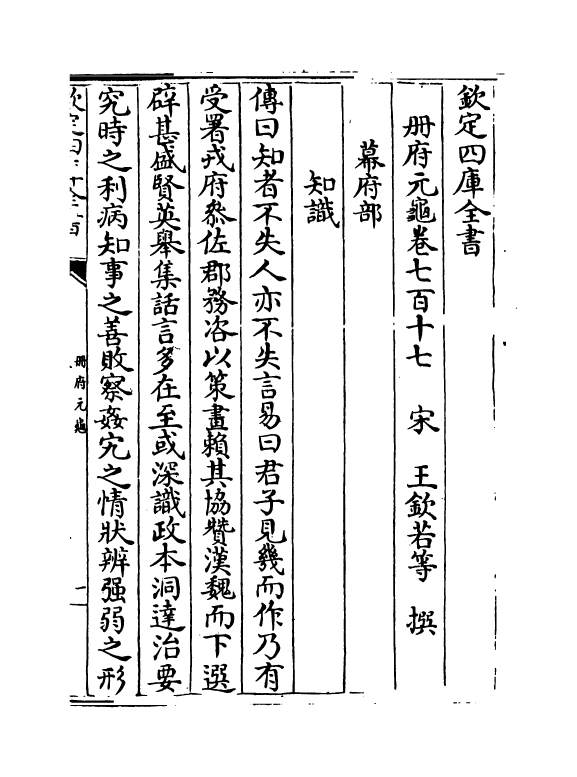 欽定四庫全書
册府元龜卷七百十七　宋　王欽若等　撰
幕府部
知識
傳曰知者不失人亦不失言易曰君子見幾而作乃有
受署戎府叅佐郡務咨以策畫賴其協贊漢魏而下選
辟甚盛賢英舉集話言多在至或深識政本洞達治要
究時之利病知事之善敗察姦宄之情狀辨强弱之形
册府元龜